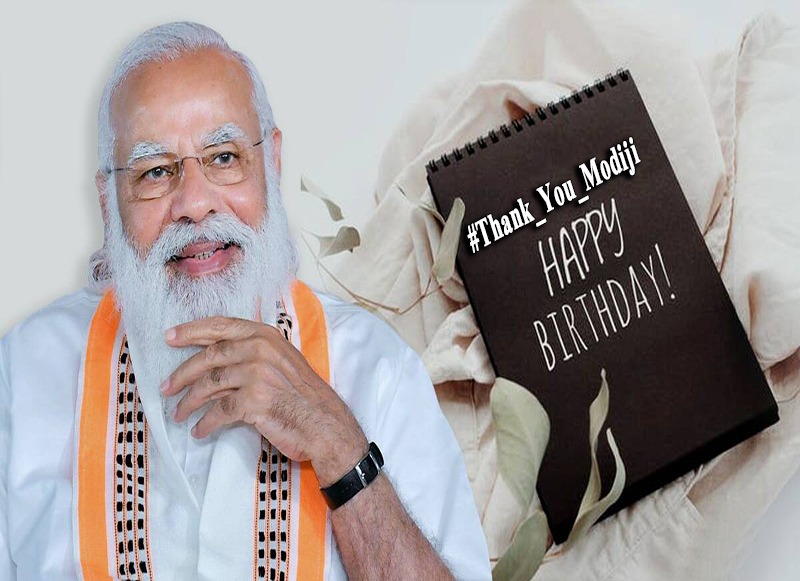 #Thank_You_Modiji
HAPPY
BIRTHDAY!